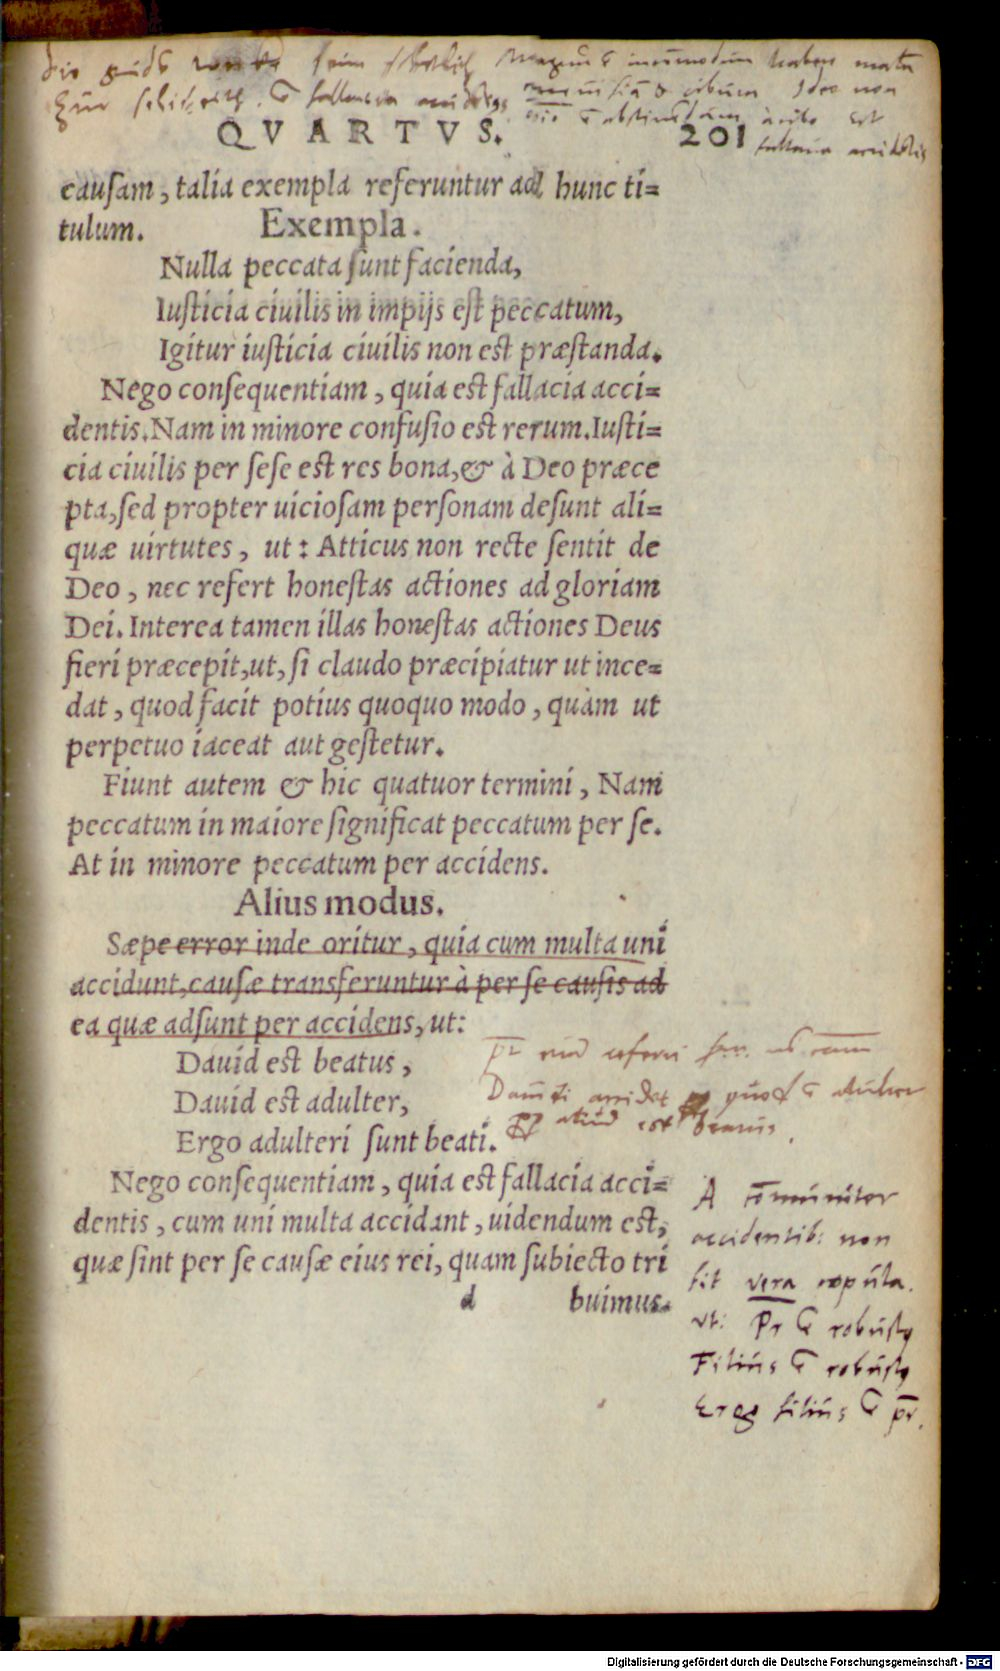 QVARTVS. 201
cauſam, talia exempla referuntur ad hunc ti=
tulum. Exempla.
Nulla peccata ſunt facienda,
Iuſticia ciuilis in impijs eſt peccatum,
Igitur iuſticia ciuilis non est præſtanda.
Nego conſequentiam, quia eſt fallacia acci=
dentis. Nam in minore confuſio eſt rerum. Iuſti=
cia ciuilis per ſeſe eſt res bona, & à Deo præce
pta, ſed propter uicioſam perſonam deſunt ali=
quæ uirtutes, ut: Atticus non recte ſentit de
Deo, nec refert honeſtas actiones ad gloriam
Dei. Interea tamen illas honeſtas actiones Deus
fieri præcepit, ut, ſi claudo præcipiatur ut ince=
dat, quod facit potius quoquo modo, quàm ut
perpetuo iaceat aut geſtetur.
Fiunt autem & hic quatuor termini, Nam
peccatum in maiore ſignificat peccatum per ſe.
At in minore peccatum per accidens.
Alius modus.
Sæpe error inde oritur, quia cum multa uni
accidunt, cauſæ transferuntur à per ſe cauſis ad
ea quæ adſunt per accidens, ut:
Dauid est beatus,
Dauid est adulter,
Ergo adulteri ſunt beati.
Nego conſequentiam, quia eſt fallacia acci=
dentis, cum uni multa accidant, uidendum est,
quæ ſint per ſe cauſæ eius rei, quam ſubiecto tri
d buimus.
A
accidentib: non
fit vera copula.
vt: Pr robust9
Filius robust9
Ergo filius pr.
Digitalisierung gefördert durch die Deutsche Forschungsgemeinschaft - DFG